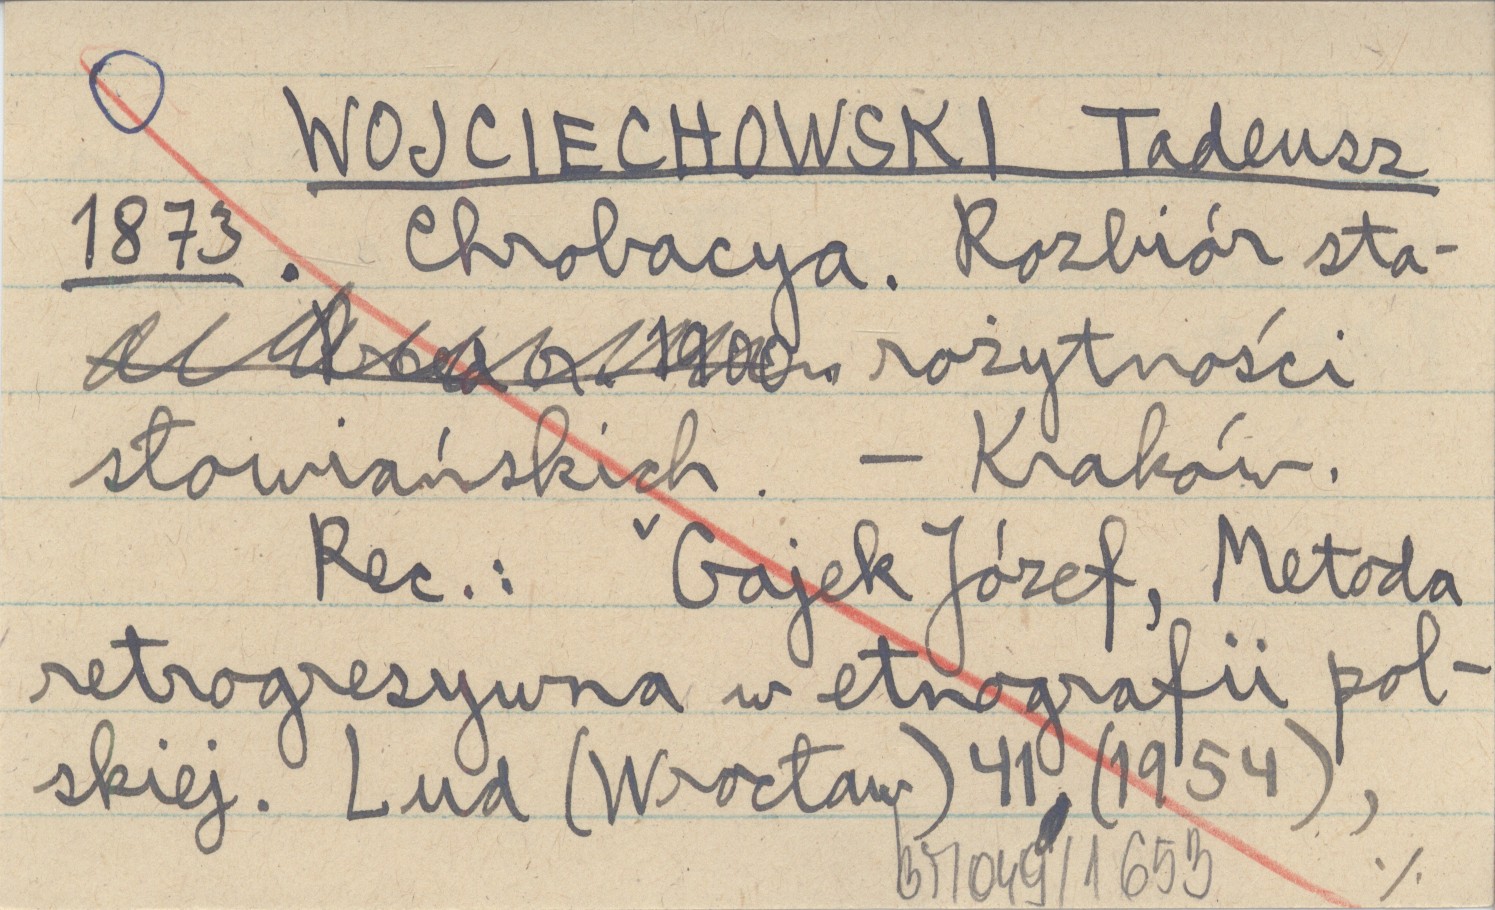 WOJCIECHOWSKI Tadeusz
1873. Chrobacya. Rozbiór sta-
rożytności
słowiańskich. – Kraków.
Rec.: ˇGajek Józef, Metoda
retrogresywna w etnografii pol-
skiej. Lud (Wrocław) 41, (1954),
1653
·/.